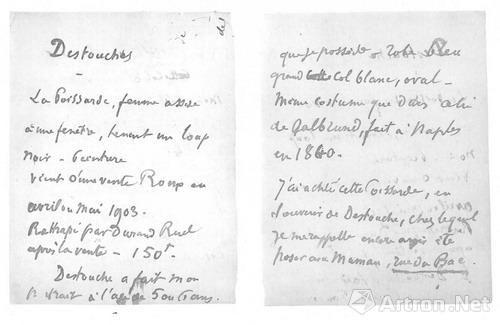 Destouches
La Poissarde, femme assise
à une fenêtre, tenant un loup
noir - Peinture
vient d'une vente Roup en
avril ou mai 1903.
Rattrapé par Durand Ruel
après la vente - 150f.
Destouche a fait mon
portrait à l'age de 5 ou 6 ans.
que je possède robe bleu
grand col blanc, oval -
même costume que dans celui
de Galbrund, fait à Naples
en 1840.
J'ai acheté cette Poissarde, en
souvenir de Destouche, chez lequel
je me rappelle encore avoir été
poser avec Maman, rue du Bac.
Artron.Net